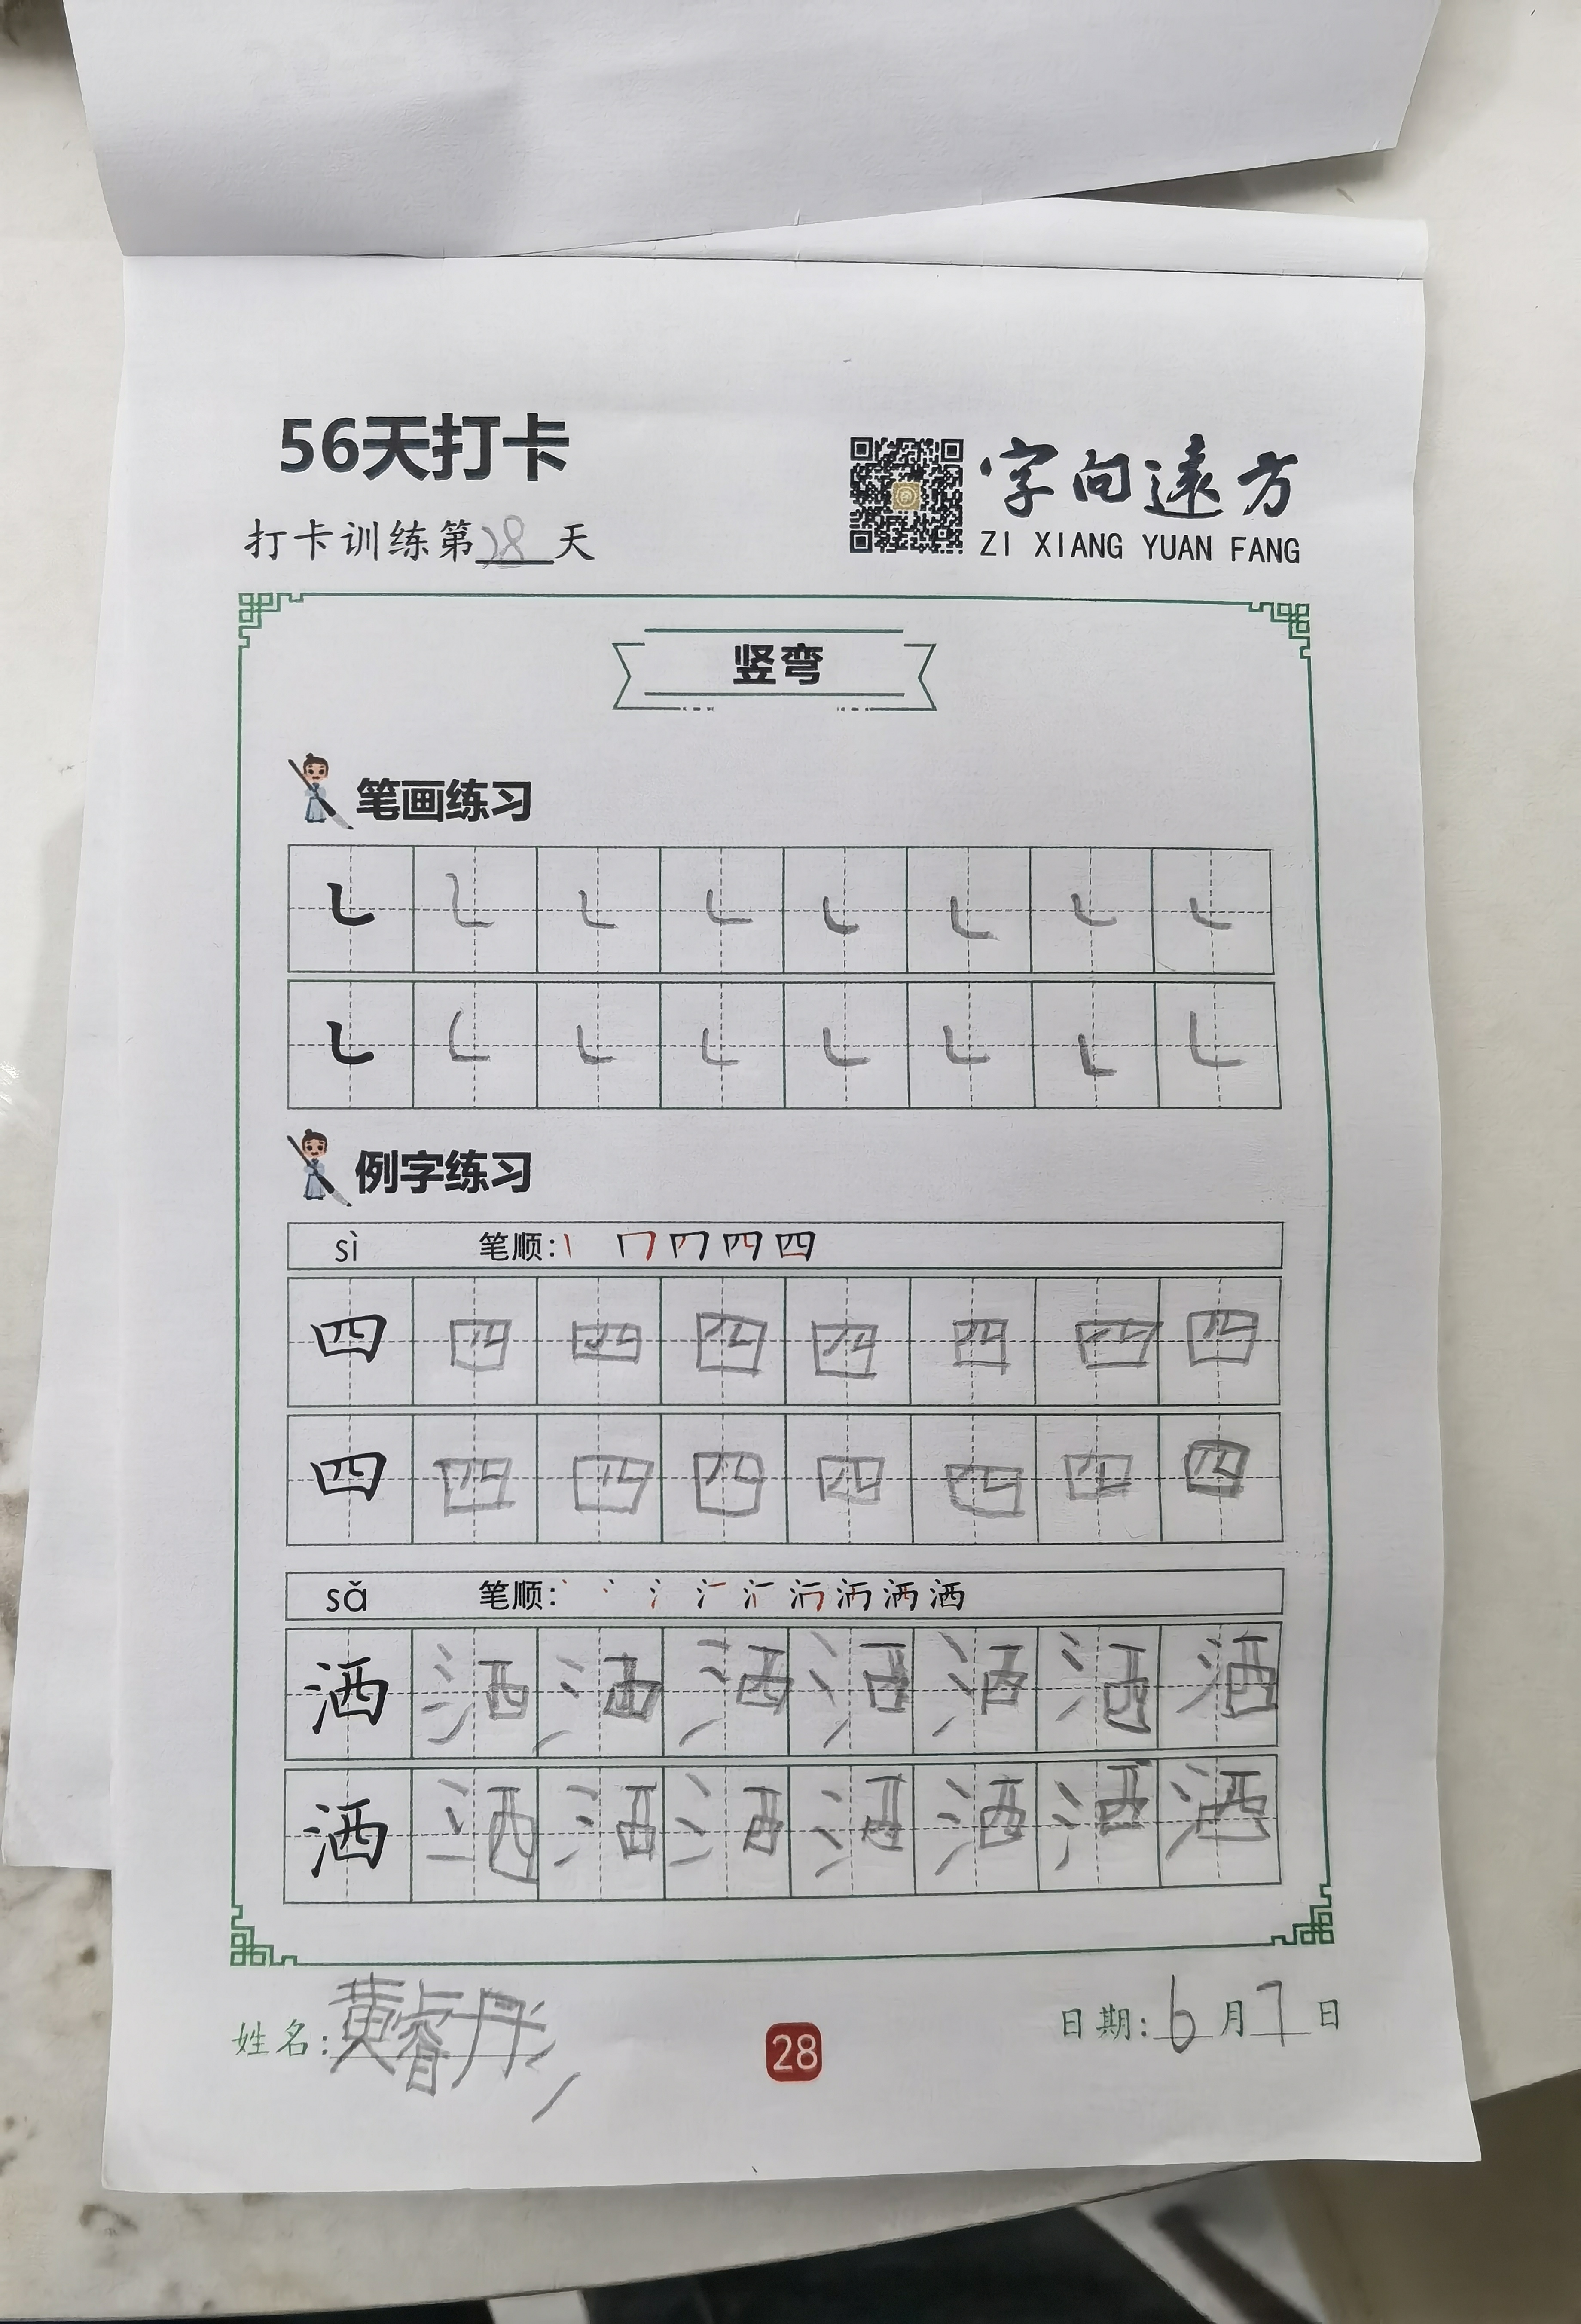 56天打卡
字向遠方
打卡训练第28天
ZI XIANG YUAN FANG
竖弯
笔画练习
㇄ ㇄ ㇄ ㇄ ㇄ ㇄ ㇄ ㇄
㇄ ㇄ ㇄ ㇄ ㇄ ㇄ ㇄ ㇄
例字练习
sì 笔顺:
四 四 四 四 四 四 四 四
四 四 四 四 四 四 四 四
sǎ 笔顺:
洒 洒 洒 洒 洒 洒 洒 洒
洒 洒 洒 洒 洒 洒 洒 洒
姓名:黄睿彤
28
日期:6月7日